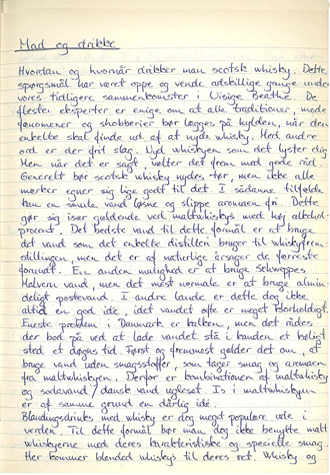 Mad og drikke
Hvordan og hvornår drikker man scotsk whisky. Dette
spørgsmål har været oppe og vende adskillige gange under
vores tidligere sammenkomster i Uisige Beatha. De
fleste eksperter er enige om at alle traditioner, mode
fænomener og snobberier bør lægges på hylden, når den
enkelte skal finde ud af at nyde whisky. Med andre
ord er der frit slag. Nyd whiskyen som det lyster dig.
Men når det er sagt, vælter det frem med gode råd.
Generelt bør scotsk whisky nydes tør, men ikke alle
mærker egner sig lige godt til det. I sådanne tilfælde
kan en smule vand løsne og slippe aromaen fri. Dette
gør sig især gældende ved maltwhiskys med høj alkohol-
procent. Det bedste vand til dette formål er at bruge
det vand som det enkelte distilleri bruger til whiskyfrem-
stillingen, men det er af naturlige årsager de færreste
forundt. En anden mulighed er at bruge Schweppes
Malvern vand, men det mest normale er at bruge almin-
deligt postevand. I andre lande er dette dog ikke
altid en god ide, idet vandet ofte er meget klorholdigt.
Eneste problem i Danmark er kalken, men det rådes
der bod på ved at lade vandet stå i kanden et køligt
sted et døgns tid. Først og fremmest gælder det om, at
bruge vand uden smagsstoffer, som tager smag og aromaen
fra maltwhiskyen. Derfor er kombinationen af maltwhisky
og sodavand / dansk vand uglaset. Is i maltwhiskyen
er af samme grund en dårlig idé.
Blandingsdrinks med whisky er dog meget populære ude i
verden. Til dette formål bør man dog ikke benytte malt
whiskyerne med deres karakteristiske og specielle smag.
Her kommer blended whiskys til deres ret. Whisky og